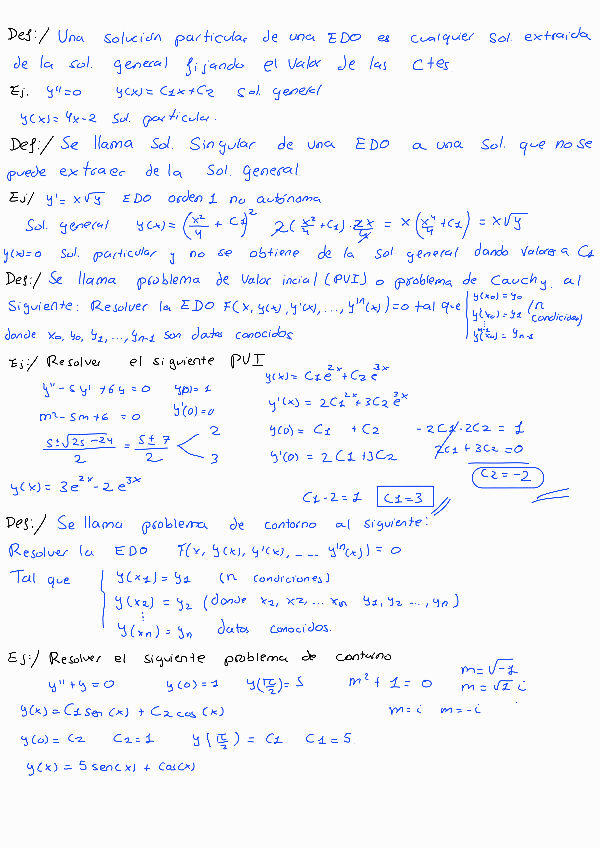 Def:/ Una solución particular de una EDO es cualquier sol. extraida
de la sol. general fijando el valor de las Ctes
Ej. y''=0 y(x)= C1x+C2 sol. general
y(x)= 4x-2 sol. particular.
Def:/ Se llama Sol. Singular de una EDO a una sol. que no se
puede extraer de la Sol. general
Ej/ y' = x√y EDO orden 1 no autónoma
Sol. general y(x) = (x²/4 + C1)² 2(x²/4 + C1)·2x/4 = x(x⁴/4 + C1) = x√y
y(x)=0 sol. particular y no se obtiene de la sol general dando valores a C1
Def:/ Se llama problema de valor incial (PVI) o problema de Cauchy, al
Siguiente: Resolver la EDO F(x, y(x), y'(x), ..., y'ⁿ(x))=0 tal que
y(x0) = y0
y'(x0) = y1 (n condiciones)
⋮
yⁿ⁻¹(x0) = yn-1
donde x0, y0, y1, ..., yn-1 son datos conocidos
Ej:/ Resolver el siguiente PVI
y'' - 5y' + 6y = 0 y(0) = 1
m² - 5m + 6 = 0 y'(0) = 0
5±√25-24 / 2 = 5±7 / 2 < 2 3
y(x) = 3e²ˣ - 2e³ˣ
y(x) = C1e²ˣ + C2e³ˣ
y'(x) = 2C1²ˣ + 3C2e³ˣ
y(0) = C1 + C2 -2C1 - 2C2 = 1
y'(0) = 2C1 + 3C2 2C1 + 3C2 = 0
C2 = -2
C1 - 2 = 1 C1 = 3
Def:/ Se llama problema de contorno al siguiente:
Resolver la EDO F(x, y(x), y'(x), ... y'ⁿ(x)) = 0
Tal que
y(x1) = y1 (n condiciones)
y(x2) = y2 (donde x1, x2, ... xn y1, y2 ..., yn)
⋮
y(xn) = yn datos conocidos.
Ej:/ Resolver el siguiente problema de contorno
y'' + y = 0 y(0) = 1 y(π/2) = 5 m² + 1 = 0 m = √-1
m = √1 i
y(x) = C1 sen(x) + C2 cos(x) m = i m = -i
y(0) = C2 C2 = 1 y(π/2) = C1 C1 = 5
y(x) = 5 sen(x) + cos(x)